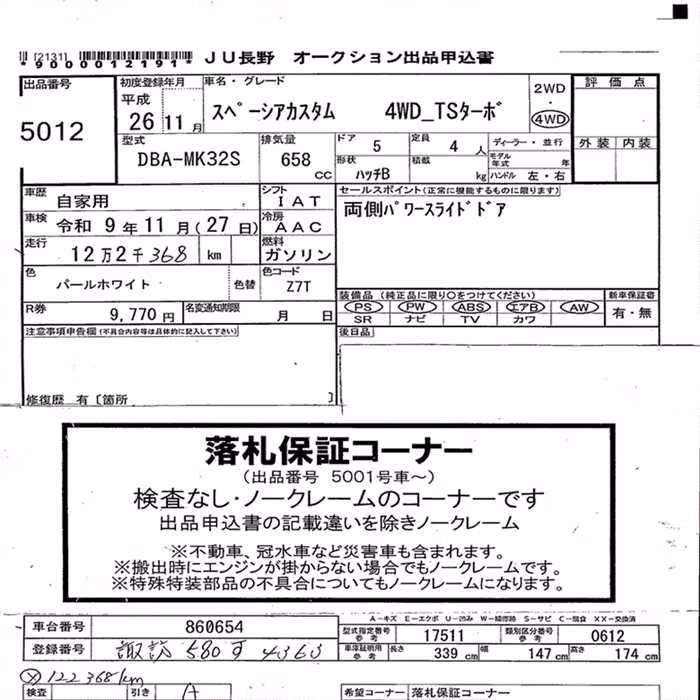 [2131]
*9000012191*
JU長野 オークション出品申込書
出品番号
5012
初度登録年月
平成
26 11 月
車名・グレード
スペーシアカスタム 4WD_TSターボ
2WD
・
4WD
評価点
外装 内装
型式
DBA-MK32S
排気量
658 CC
ドア 5
定員 4 人
ディーラー・並行
モデル年式 年
形状 ハッチB
積載 kg
ハンドル 左・右
車歴 自家用
シフト IAT
セールスポイント(正常に機能するものに限ります)
両側パワースライドドア
車検 令和 9 年 11 月(27 日)
冷房 AAC
走行 12万2千368 km
燃料 ガソリン
色 パールホワイト
色替
色コード Z7T
装備品(純正品に限り○をつけてください)
新車保証書
R券 9,770 円
名変通知期限 月 日
PS PW ABS エアB AW
有・無
SR ナビ TV カワ
注意事項申告欄(不具合内容等は具体的に記入して下さい)
後日品
修復歴 有〔箇所 〕
落札保証コーナー
(出品番号 5001号車~)
検査なし・ノークレームのコーナーです
出品申込書の記載違いを除きノークレーム
※不動車、冠水車など災害車も含まれます。
※搬出時にエンジンが掛からない場合でもノークレームです。
※特殊特装部品の不具合についてもノークレームになります。
A-キズ E-エクボ U-凹み W-補修跡 S-サビ C-腐食 XX-交換済
車台番号 860654
型式指定番号 参考 17511
類別区分番号 参考 0612
登録番号 諏訪 580 す 4363
車庫証明用 参考 長さ 339 cm 幅 147 cm 高さ 174 cm
122368km
検査
引き
A
希望コーナー 落札保証コーナー